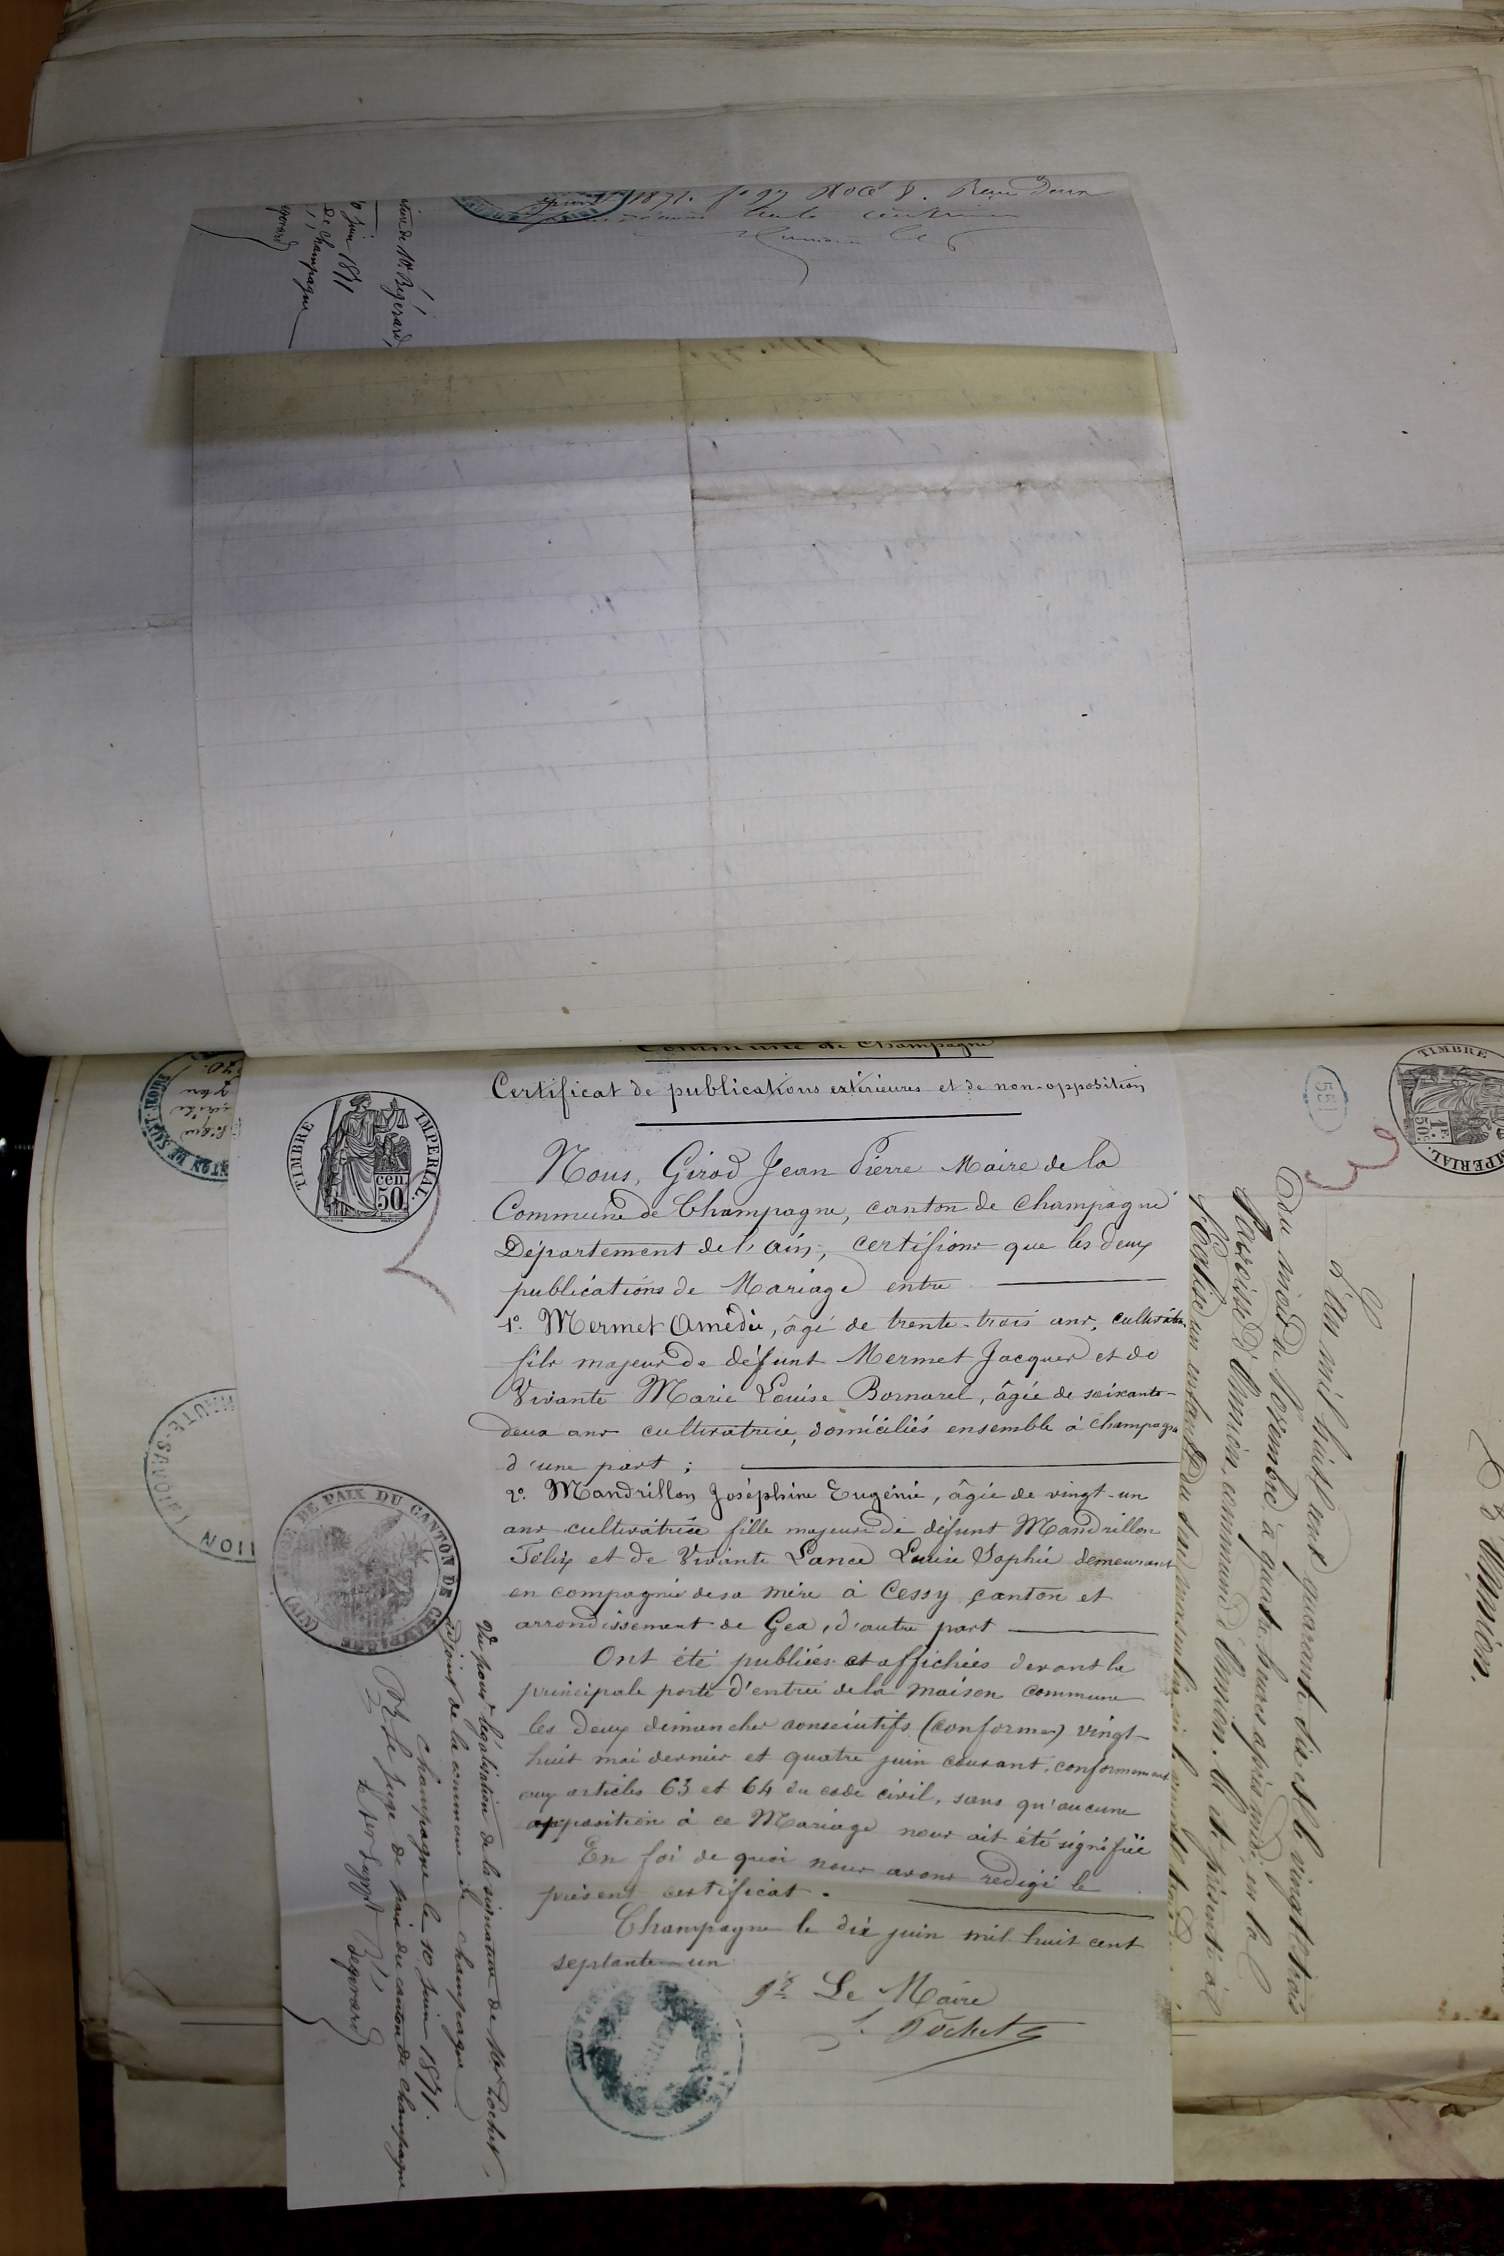 1871. fo 97
Mr Bégérard,
10 juin 1871
De Champagne
Commune de Champagne
Certificat de publications extérieures et de non-opposition
TIMBRE IMPERIAL
50 cen
Nous, Girod Jean Pierre Maire de la
Commune de Champagne, canton de Champagne
Département de l'ain, certifions que les deux
publications de Mariage entre
1o. Mermet Amédée, âgé de trente-trois ans, cultivateur
fils majeur de défunt Mermet Jacques et de
Vivante Marie Louise Bornarel, âgée de soixante-
deux ans cultivatrice, domiciliés ensemble à Champagne
d'une part ;
2o. Mandrillon Joséphine Eugénie, âgée de vingt-un
ans cultivatrice fille majeure de défunt Mandrillon
Félix et de Vivante Lance Louise Sophie demeurant
en compagnie de sa mère à Cessy canton et
arrondissement de Gex, d'autre part
Ont été publiées et affichées devant la
principale porte d'entrée de la maison commune
les deux dimanches consécutifs (conformes) vingt-
huit mai dernier et quatre juin courant, conformement
aux articles 63 et 64 du code civil, sans qu'aucune
opposition à ce Mariage nous ait été signifiée
En foi de quoi nous avons redigé le
présent certificat.
Champagne le dix juin mil huit cent
septante un
Le Maire
Pochet
DE PAIX DU CANTON DE CHAMPAGNE (AIN)
Vu pour légalisation de la signature de Mr Pochet,
adjoint de la commune de Champagne
Champagne le 10 juin 1871.
Le juge de paix du canton de Champagne
Bégérard
HAUTE-SAVOIE
551
TIMBRE IMPERIAL
1F 50c
L'an mil huit cent quarante six, et le vingt trois
Du mois de Novembre à quatre heures après midi, en la
Paroisse d'Annion, commune d'Annion. A été présenté à
l'Eglise un enfant du sexe masculin